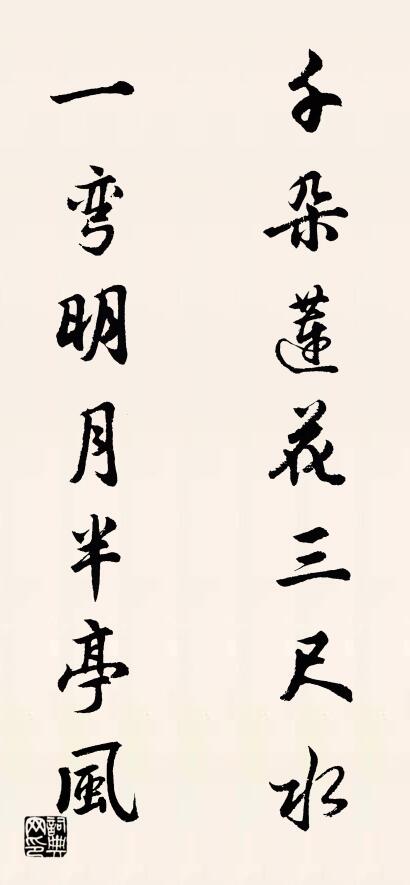 千朵蓮花三尺水
一弯明月半亭風
詞典网印